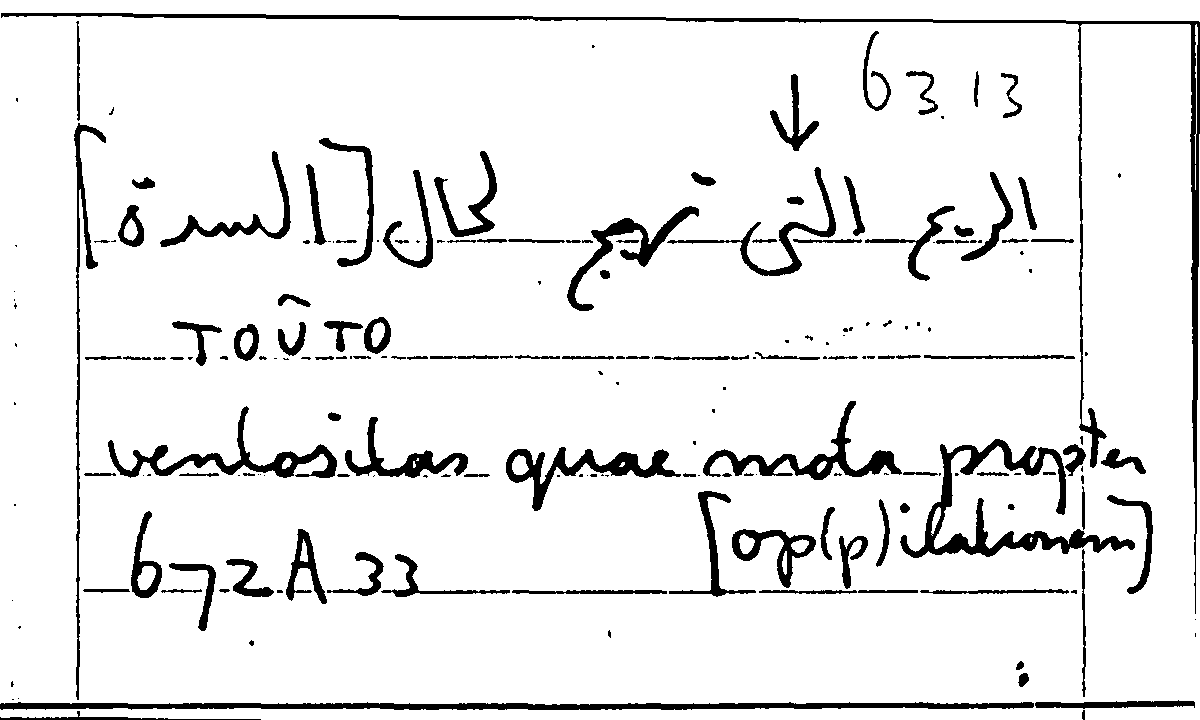 63 13
الريح التي تهيج لحال [السدة]
τοῦτο
ventositas quae mota propter
[op(p)ilationem]
672 A 33